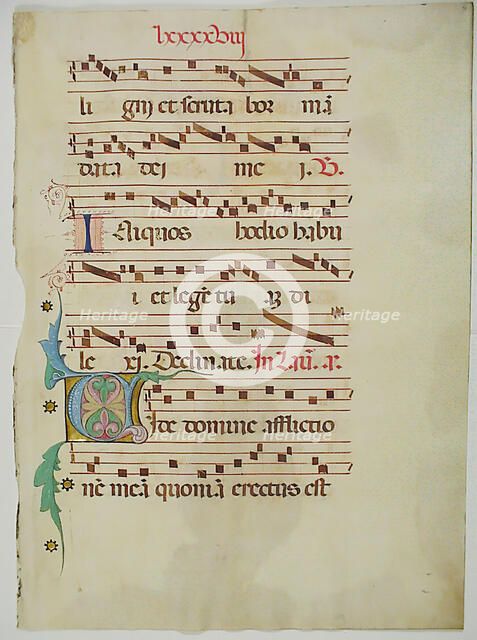 lxxxxviij
li gni et scruta bor mā
data dei me j. V̄.
Iniquos hodio habu
i et legē tu aʒ di
le xj. Declinate. In Lau. a.
Vide domine afflictio
nē meā quoniā erectus est
Heritage
Heritage
Heritage
Heritage
Heritage
Heritage
C